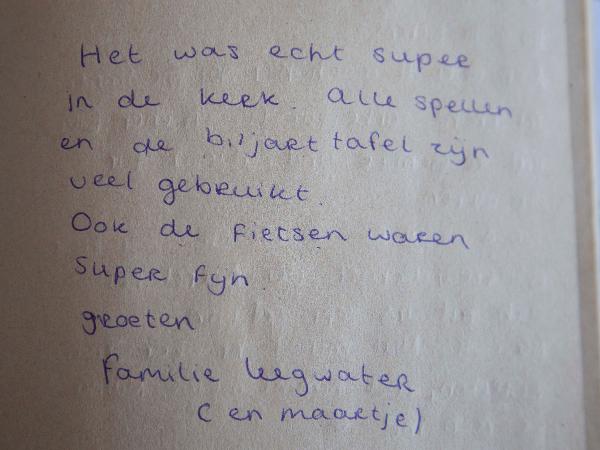 Het was echt super
in de kerk. Alle spellen
en de biljart tafel zijn
veel gebruikt.
Ook de fietsen waren
super fijn.
groeten
Familie Leegwater
(en maartje)